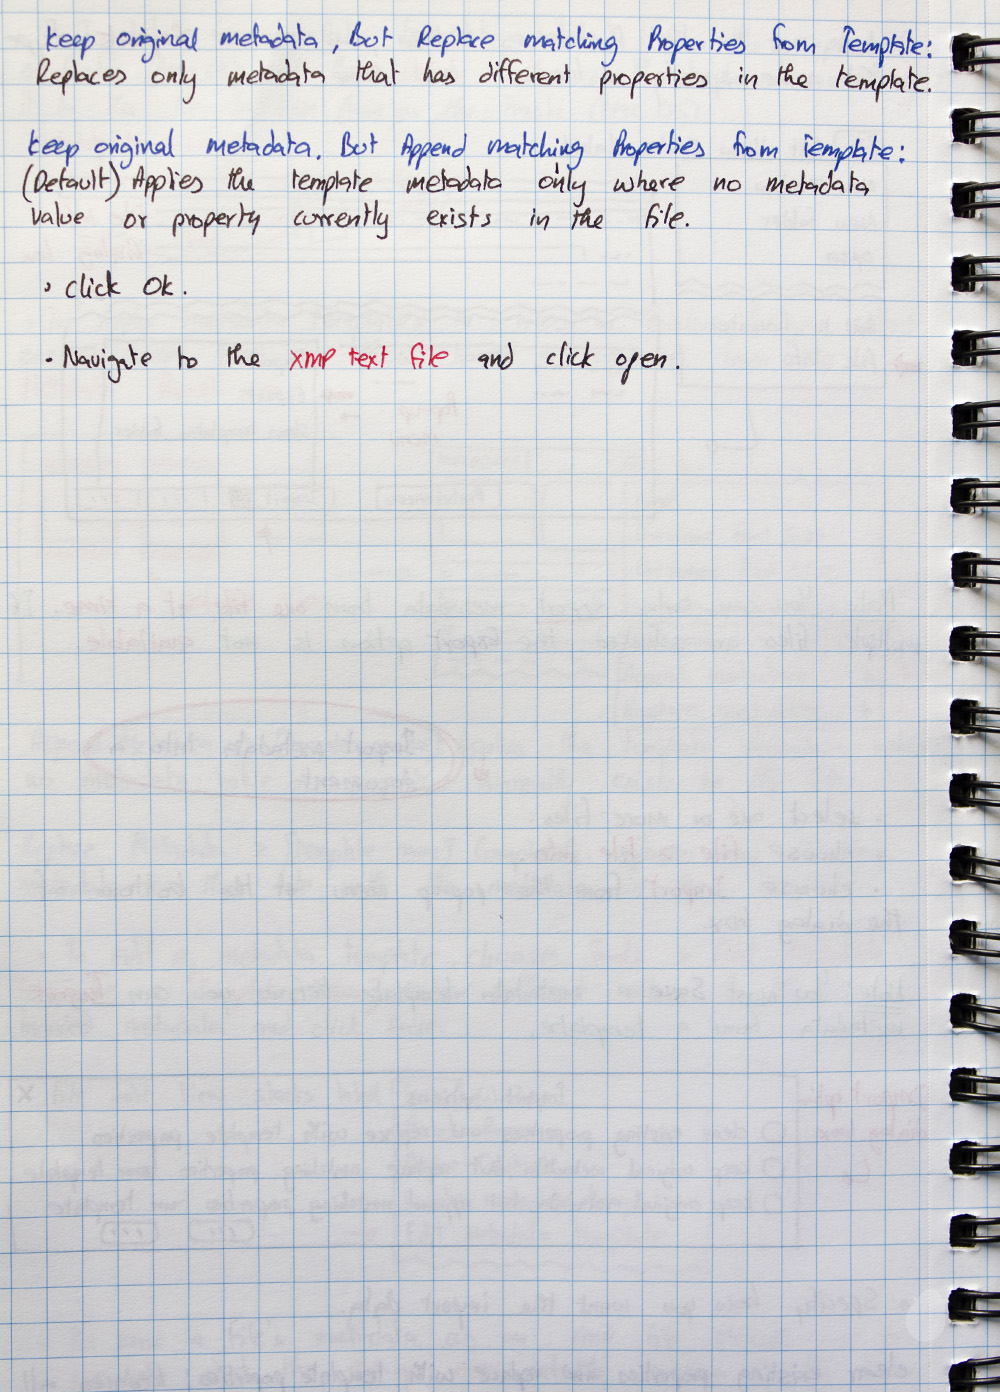 Keep original metadata, But Replace matching Properties from Template:
Replaces only metadata that has different properties in the template.
Keep original metadata. But Append matching Properties from Template:
(Default) Applies the template metadata only where no metadata
value or property currently exists in the file.
· click Ok.
· Navigate to the xmp text file and click open.